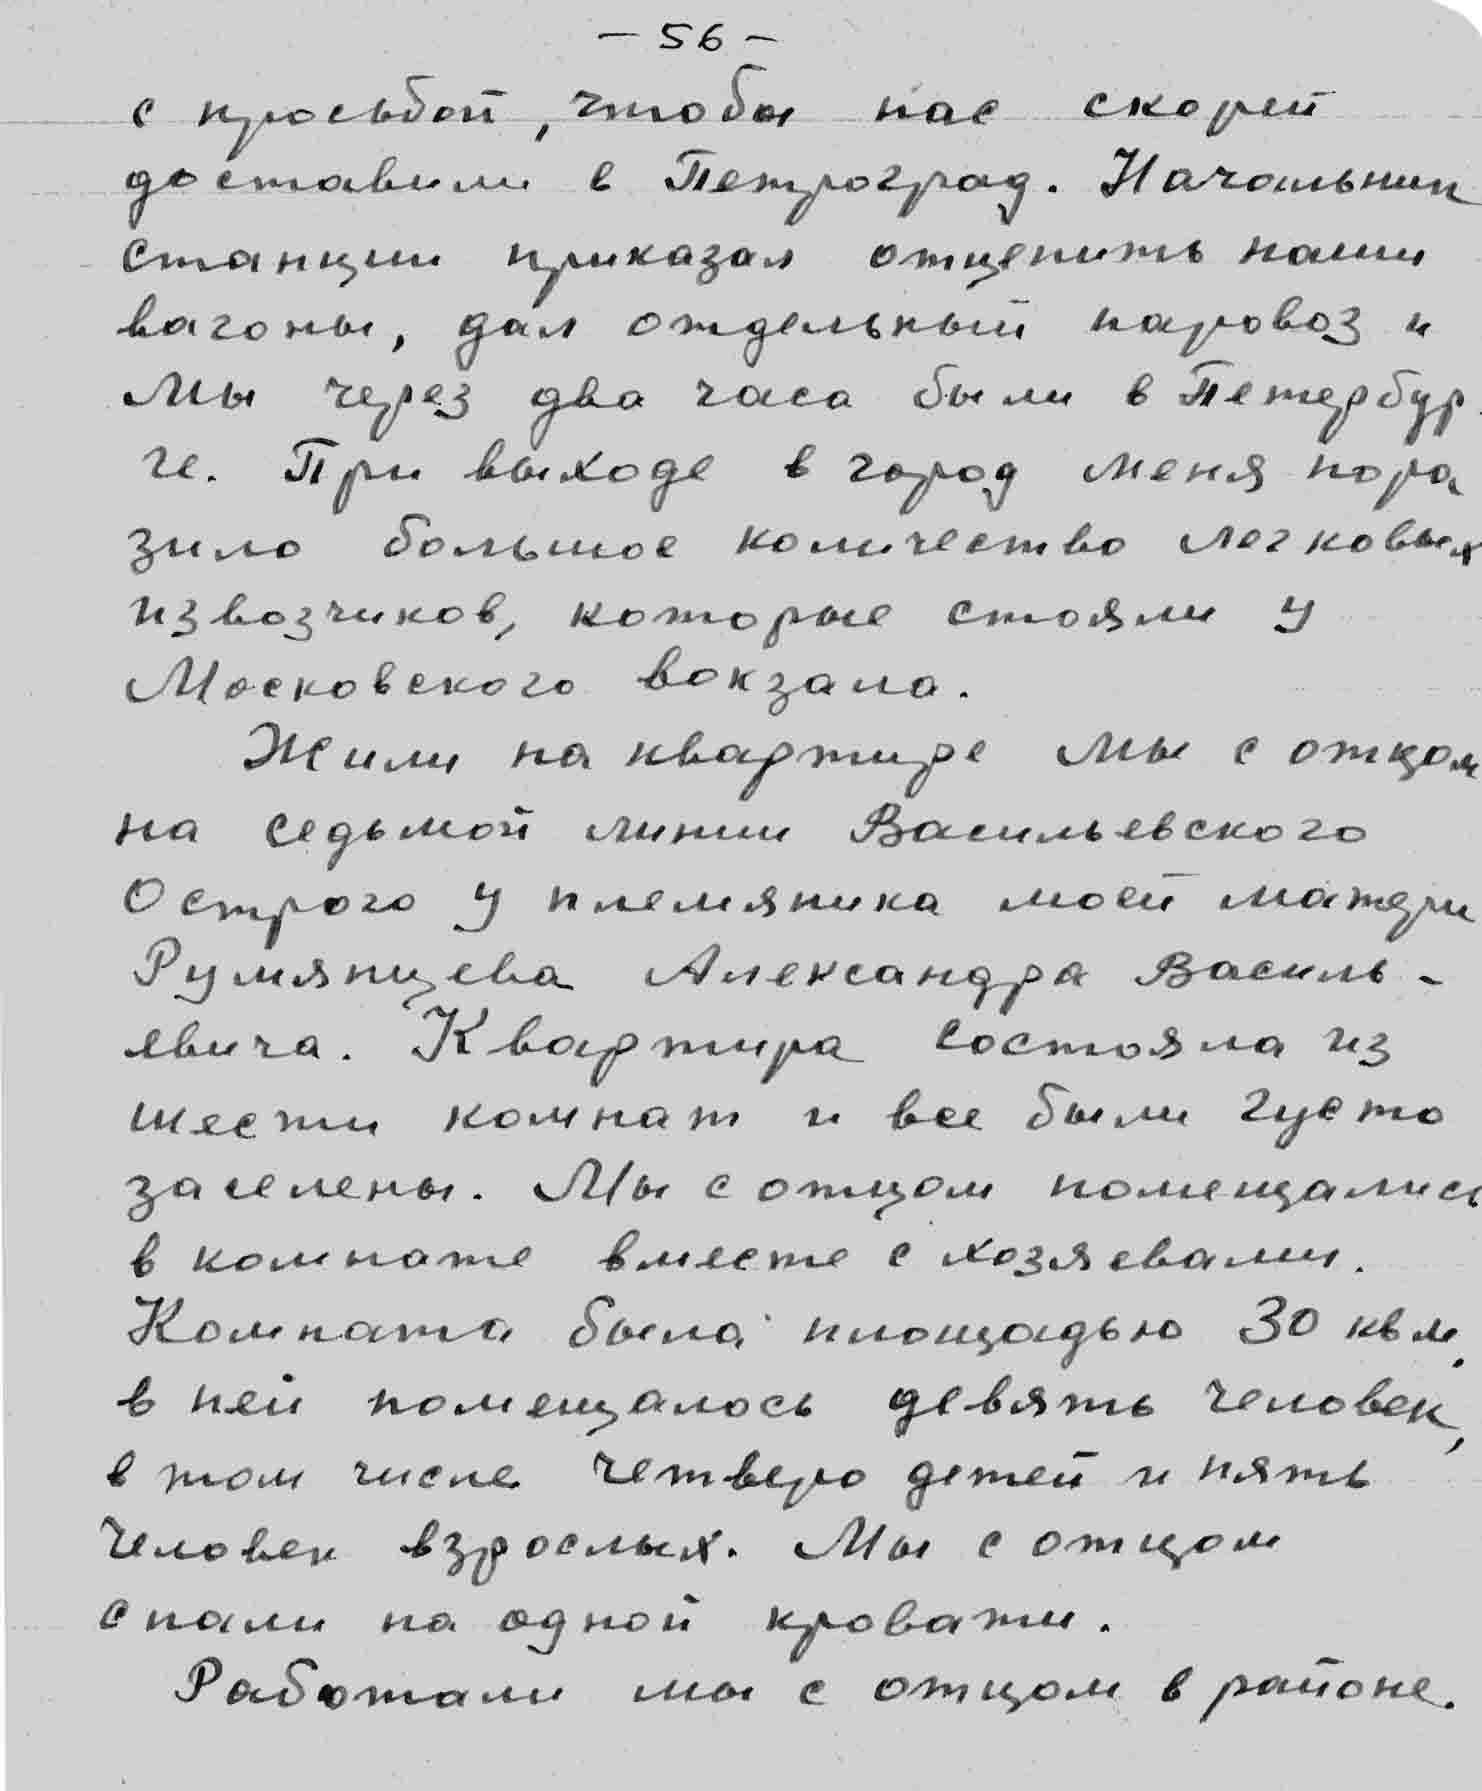 - 56 -
с просьбой, чтобы нас скорей
доставили в Петроград. Начальник
станции приказал отцепить наши
вагоны, дал отдельный паровоз и
мы через два часа были в Петербур
ге. При выходе в город меня пора
зило большое количество легковых
извозчиков, которые стояли у
Московского вокзала.
Жили на квартире мы с отцом
на седьмой линии Васильевского
Острого у племяника моей матери
Румянцева Александра Василь-
евича. Квартира состояла из
шести комнат и все были густо
заселены. Мы с отцом помещались
в комнате вместе с хозяевами.
Комната была площадью 30 кв м,
в ней помещалось девять человек,
в том числе четверо детей и пять
человек взрослых. Мы с отцом
спали на одной кровати.
Работали мы с отцом в районе.